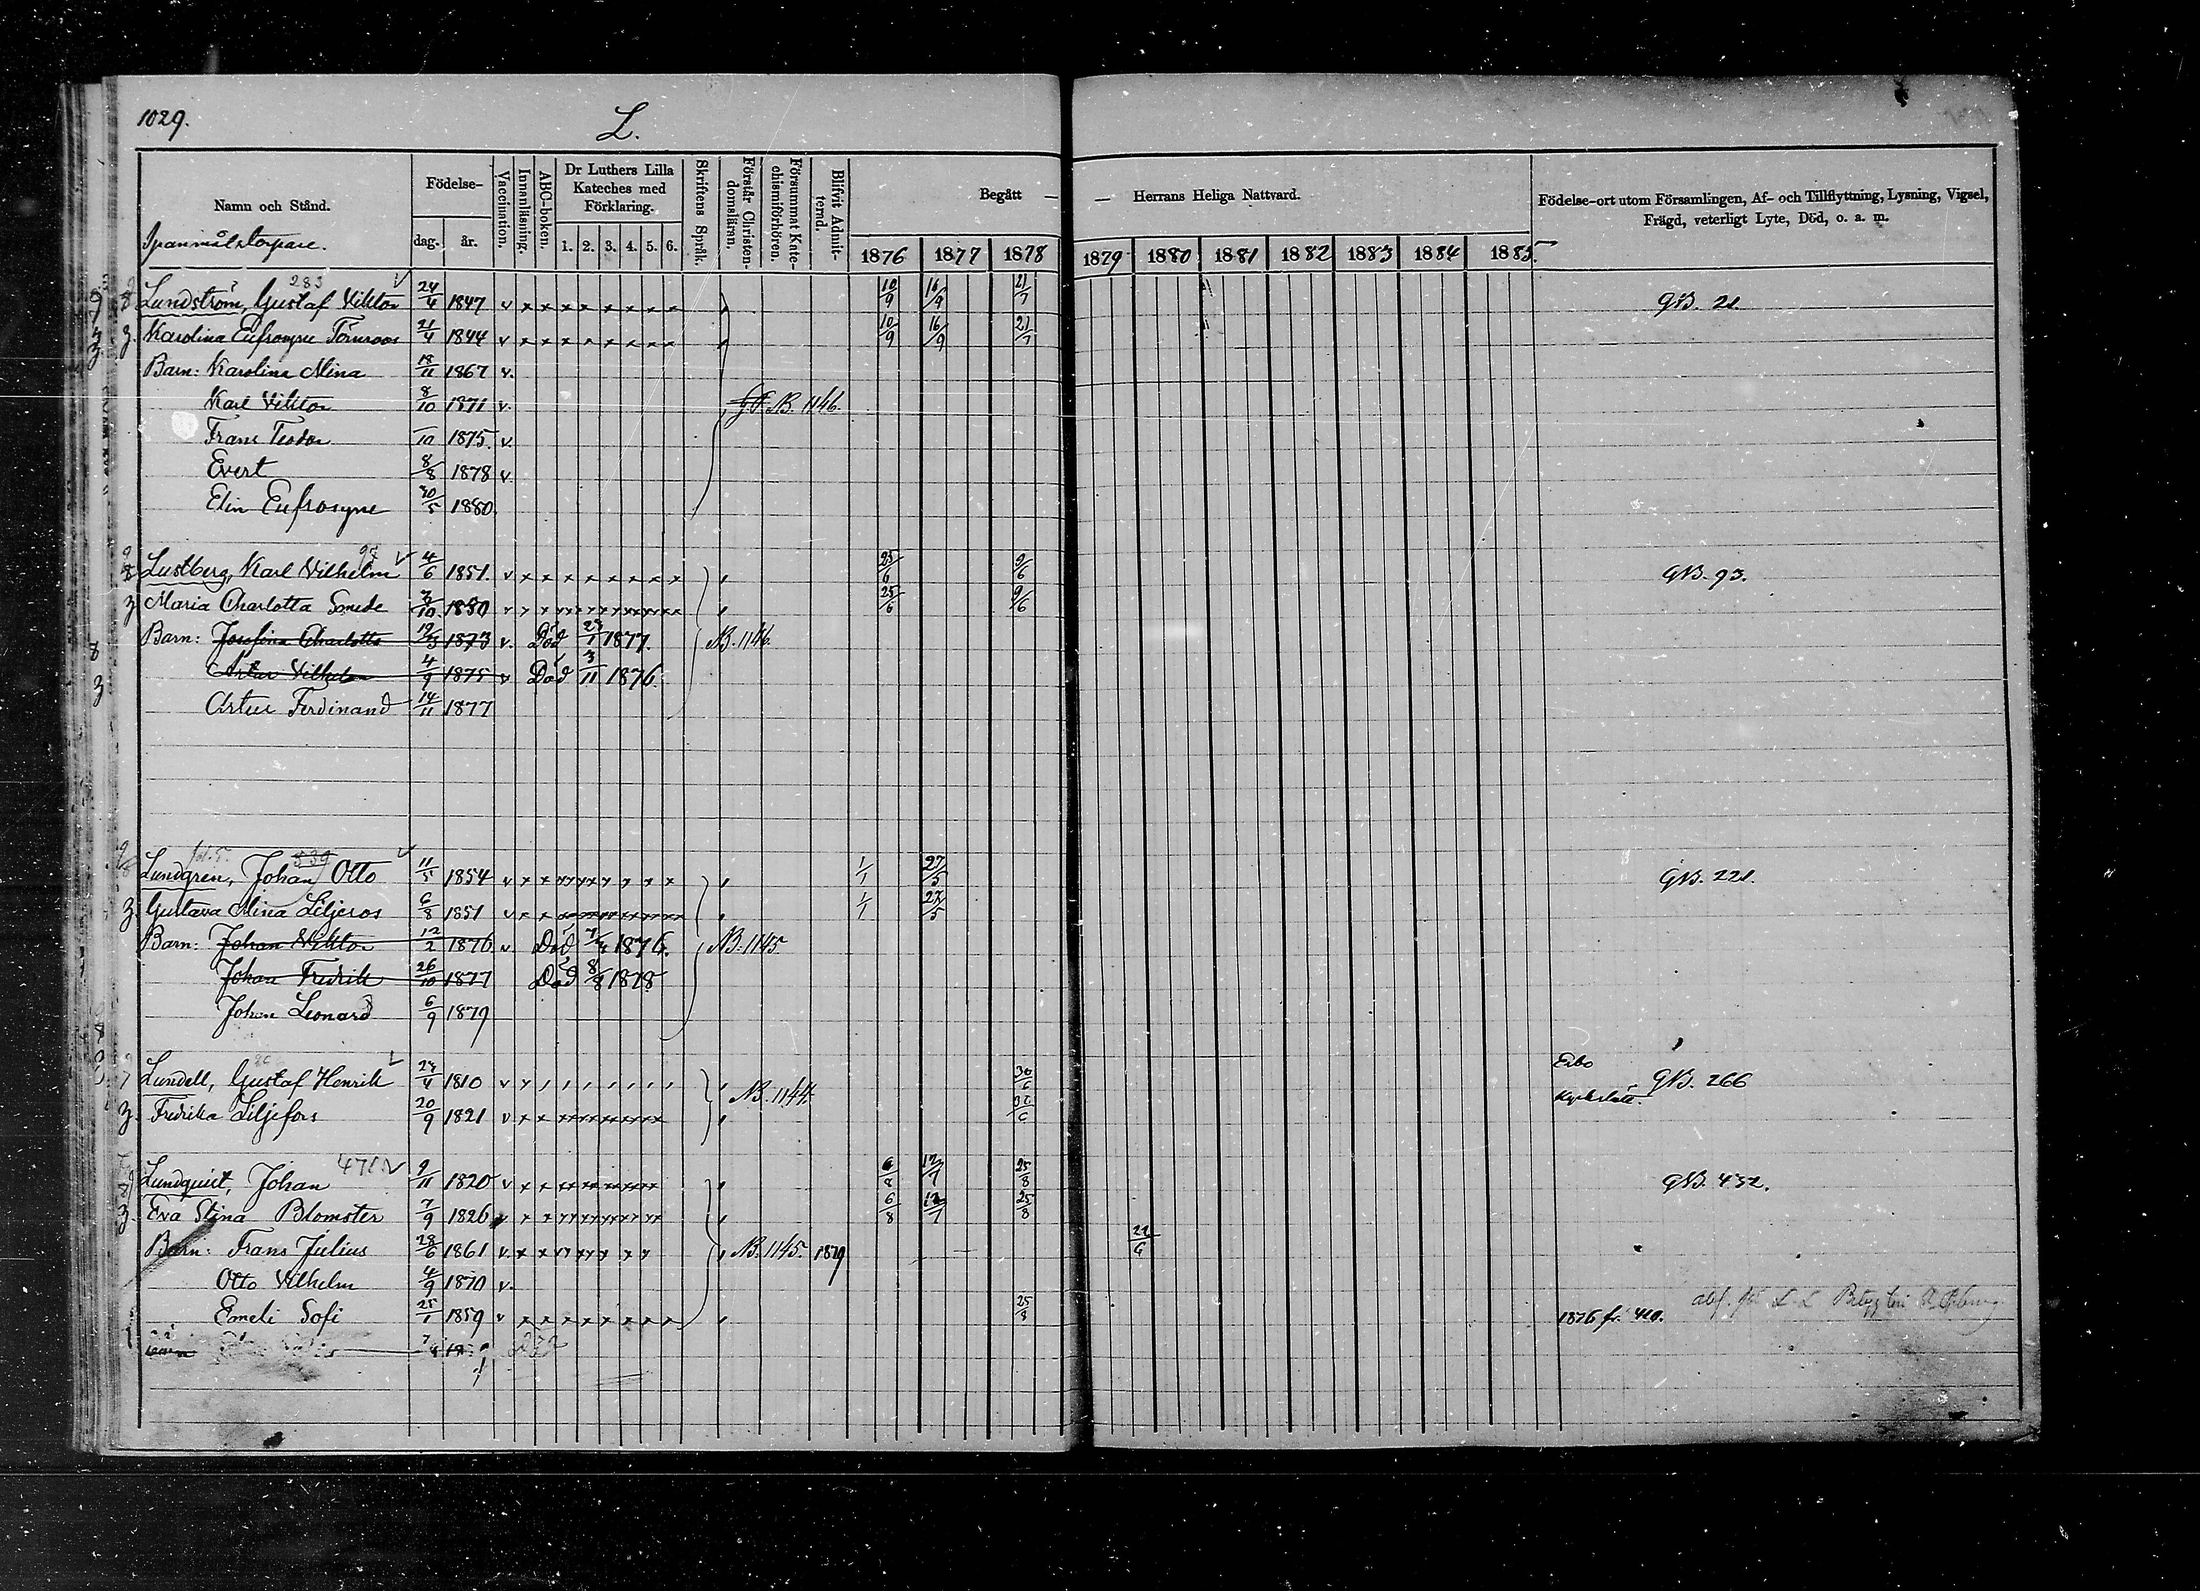 1029.
L.
Namn och Stånd.
Födelse-
dag. år.
Vaccination.
Innanläsning.
ABC-boken.
Dr Luthers Lilla Kateches med Förklaring.
1. 2. 3. 4. 5. 6.
Skriftens Språk.
Förstår Christendomsläran.
Försummat Katechismiförhören.
Blifvit Admitternd.
Begått — — Herrans Heliga Nattvard.
1876 1877 1878 1879 1880 1881 1882 1883 1884 1885.
Födelse-ort utom Församlingen, Af- och Tillflyttning, Lysning, Vigsel,
Frägd, veterligt Lyte, Död, o. a. m.
283
Lundström, Gustaf Viktor 24/4 1847 v 10/9 16/9 21/7 GB. 21.
Karolina Eufrosyne Törnroos 21/4 1844 v 10/9 16/9 21/7
Barn: Karolina Mina 18/11 1867 v.
Karl Viktor 8/10 1871 v. NB. 1146.
Frans Teodor /10 1875. v
Evert 8/8 1878 v
Elin Eufrosyne 30/5 1880.
97
Lustberg, Karl Vilhelm 4/6 1851. v 25/6 9/6 GB. 93.
Maria Charlotta Smede 3/10. 1850 v 25/6 9/6
Barn: Josefina Charlotta 19/3 1873 v. Död 23/1 1877. NB. 1146.
Artur Vilhelm 4/9 1875 v Död 3/11 1876.
Artur Ferdinand 14/11 1877
539
Lundgren, Johan Otto 11/5 1854 v 1/1 27/5 GB. 221.
Gustava Mina Liljeros 6/8 1851 v 1/1 27/5
Barn: Johan Viktor 12/2 1876 v Död 7/4 1876. NB. 1145
Johan Fredrik 26/10 1877 Död 8/8 1878
Johan Leonard 6/9 1879
Lundell, Gustaf Henrik 23/4 1810 v NB. 1144. 30/6 Esbo GB. 266
Fredrika Liljefors 20/9 1821 v 30/6 Kyrkslätt.
Lundquist, Johan 9/11 1820 v 6/8 12/7 25/8 GB. 432.
Eva Stina Blomster 7/9 1826 v 6/8 12/7 25/8
Barn: Frans Julius 28/6 1861 v. NB. 1145. 1879 22/6
Otto Vilhelm 4/9 1870 v.
Emeli Sofi 25/1 1859 v 25/8 1876 fr. 410.